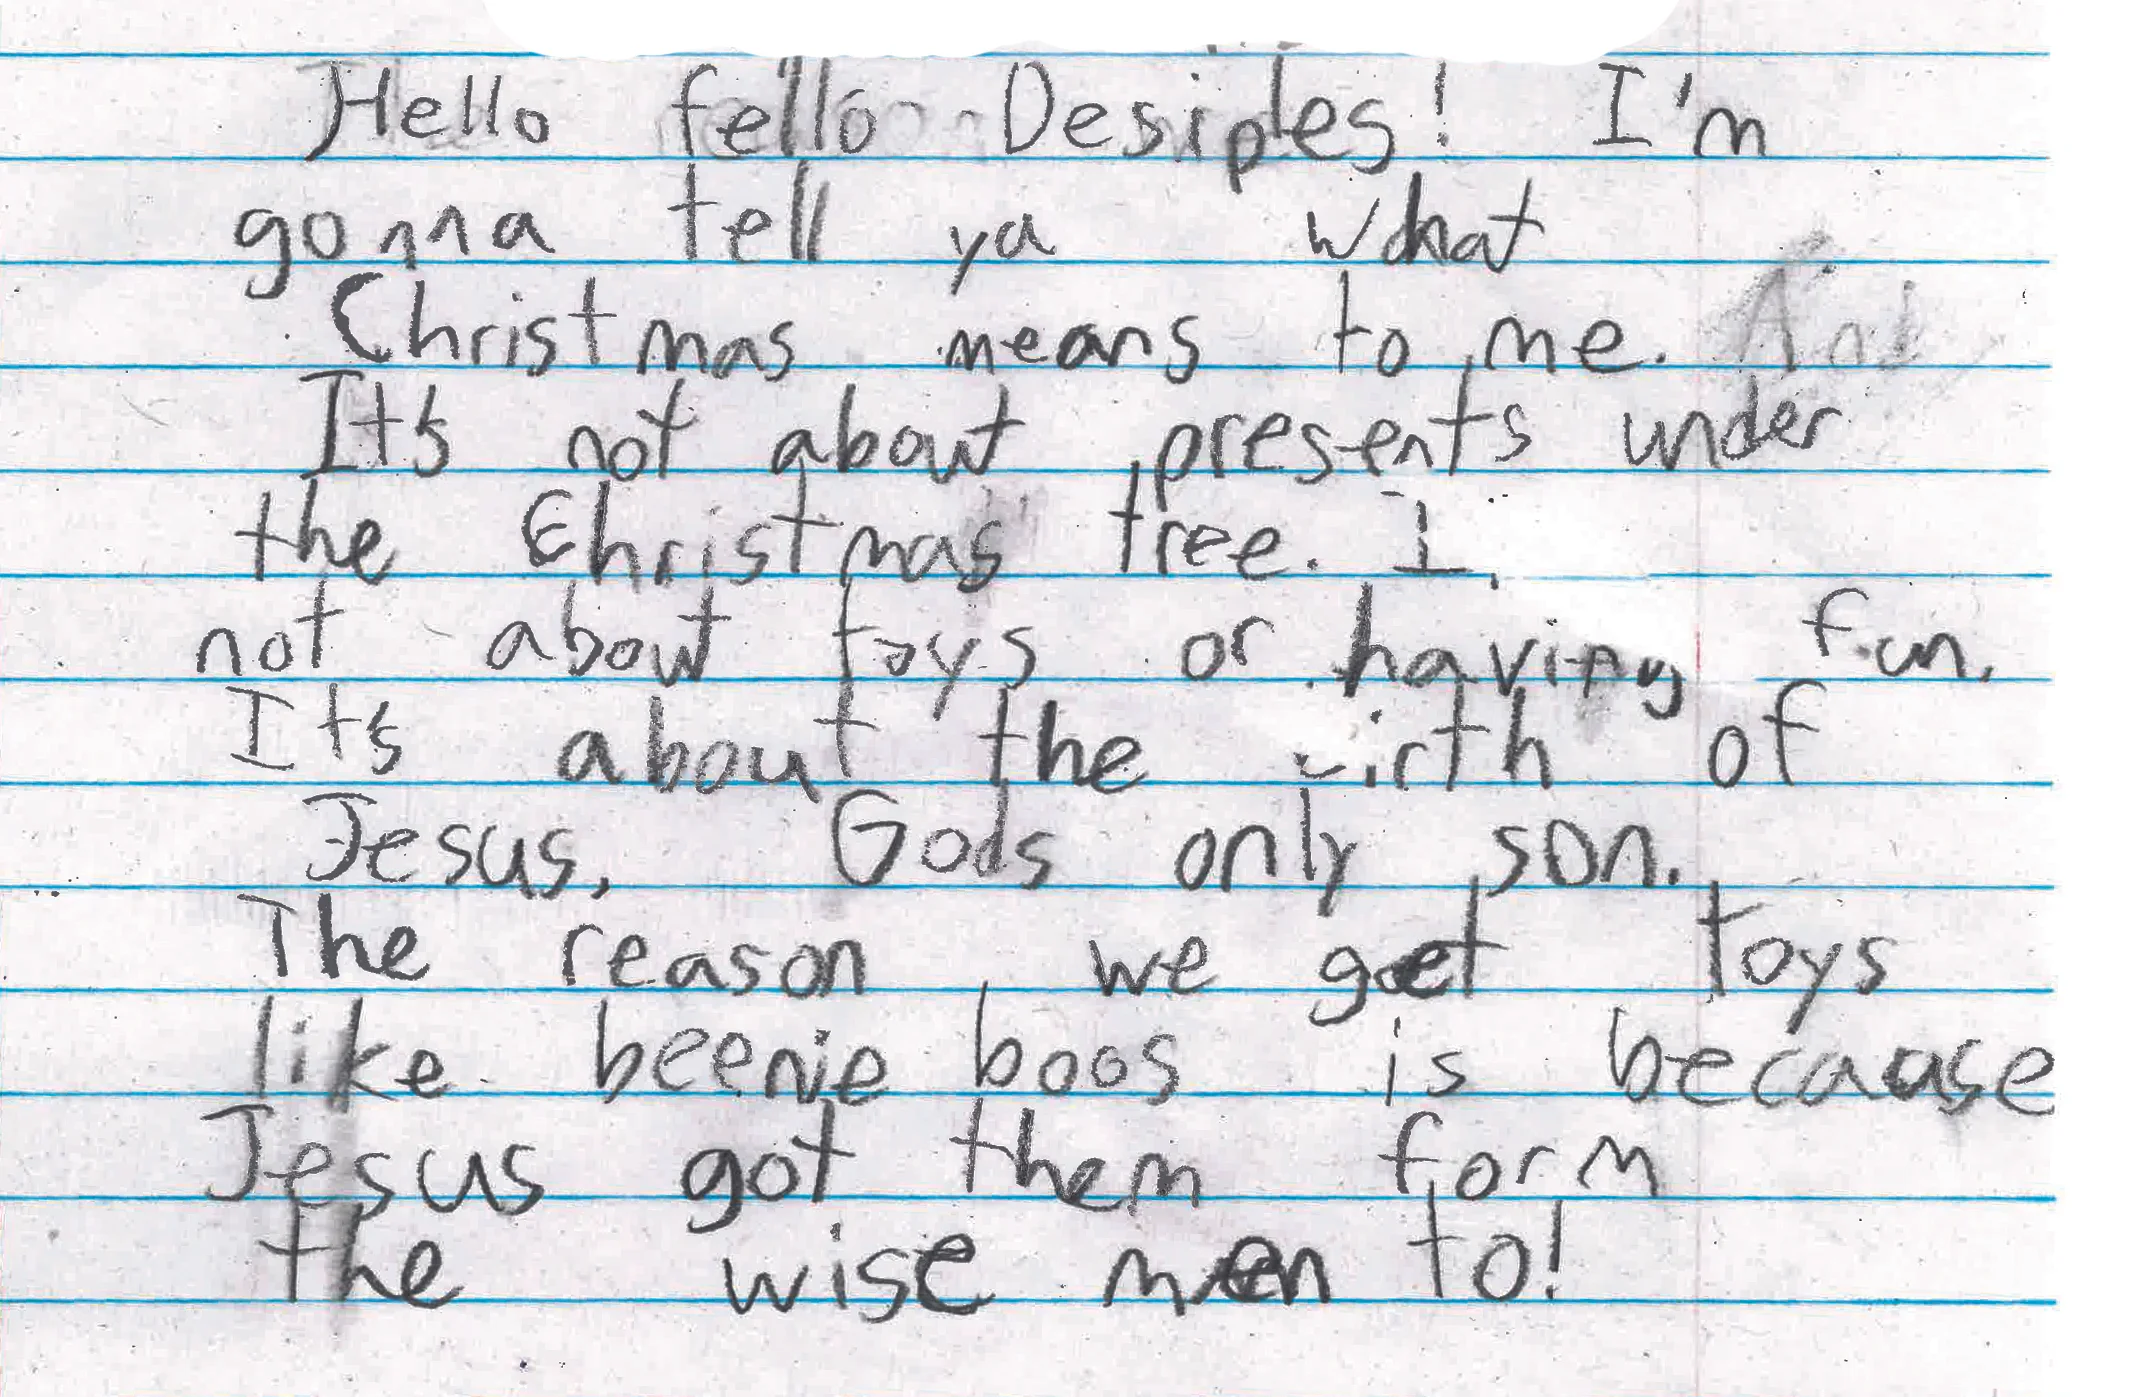 Hello fello Desiples! I'm
gonna tell ya what
Christmas means to me.
It's not about presents under
the Christmas tree. I
not about toys or having fun.
It's about the irth of
Jesus, Gods only son.
The reason we get toys
like beenie boos is because
Jesus got them form
the wise men to!